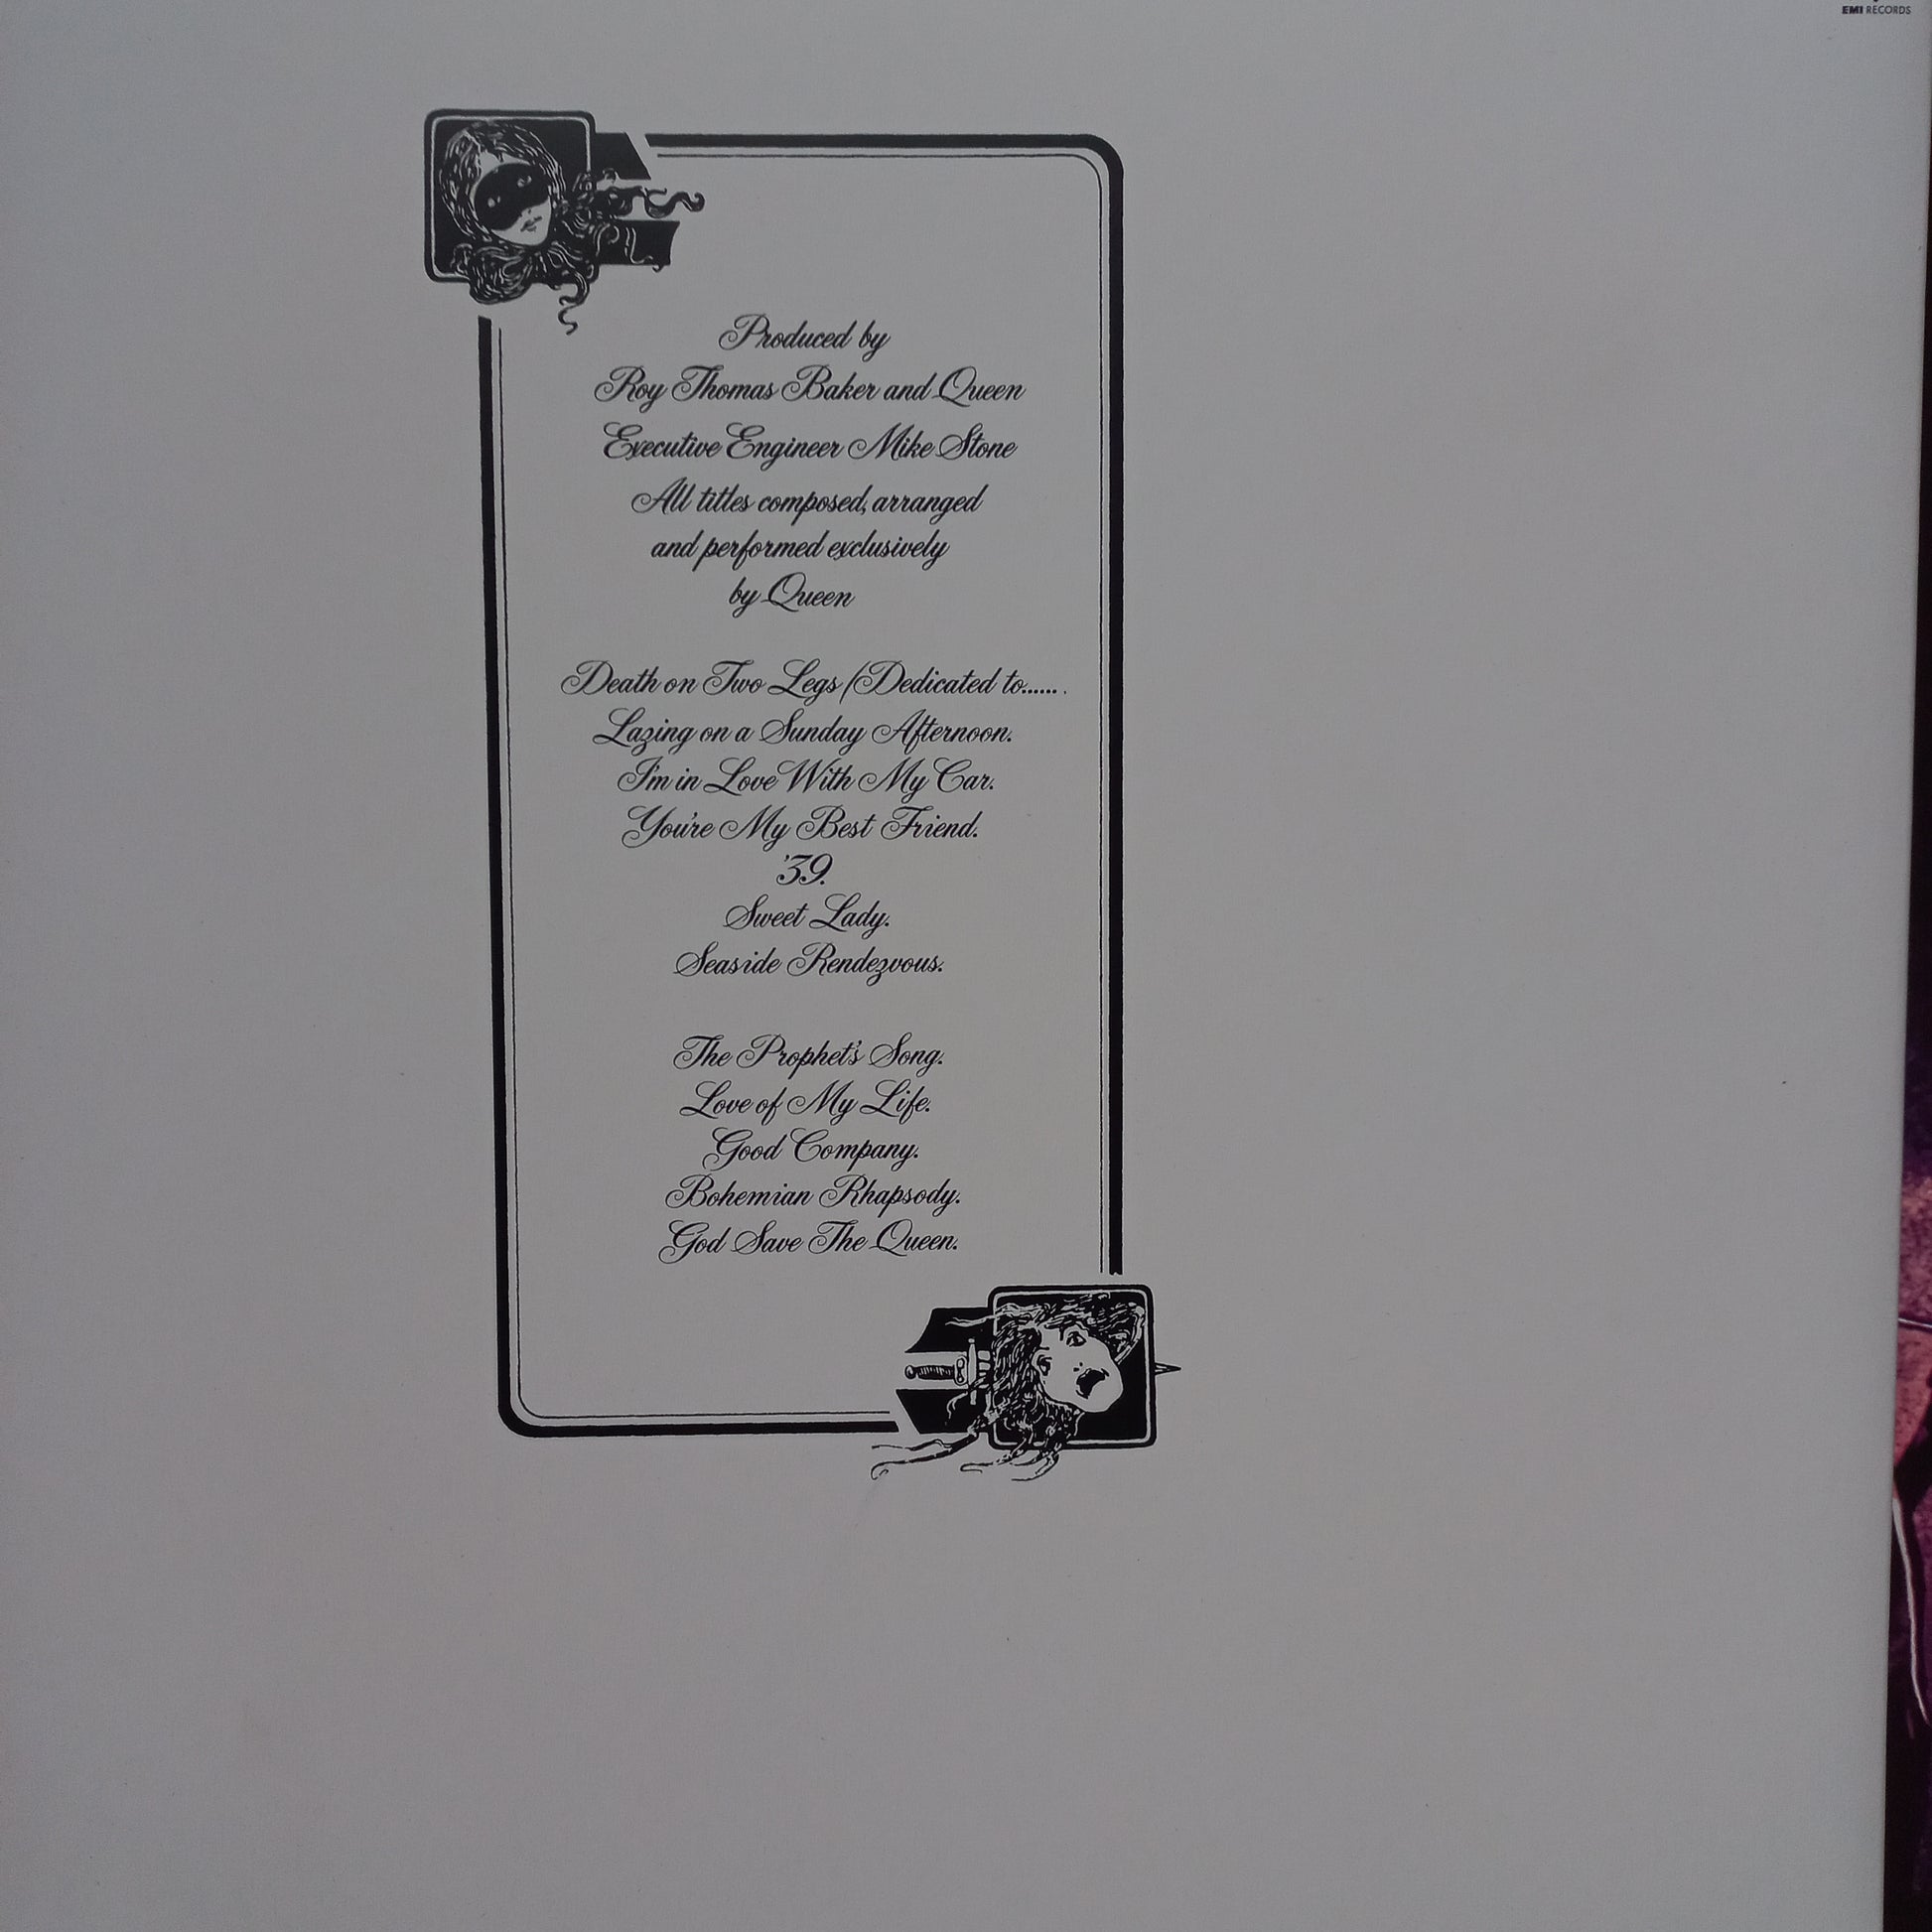 EMI RECORDS
Produced by
Roy Thomas Baker and Queen
Executive Engineer Mike Stone
All titles composed, arranged
and performed exclusively
by Queen
Death on Two Legs (Dedicated to.......
Lazing on a Sunday Afternoon.
I'm in Love With My Car.
You're My Best Friend.
'39.
Sweet Lady.
Seaside Rendezvous.
The Prophet's Song.
Love of My Life.
Good Company.
Bohemian Rhapsody.
God Save The Queen.